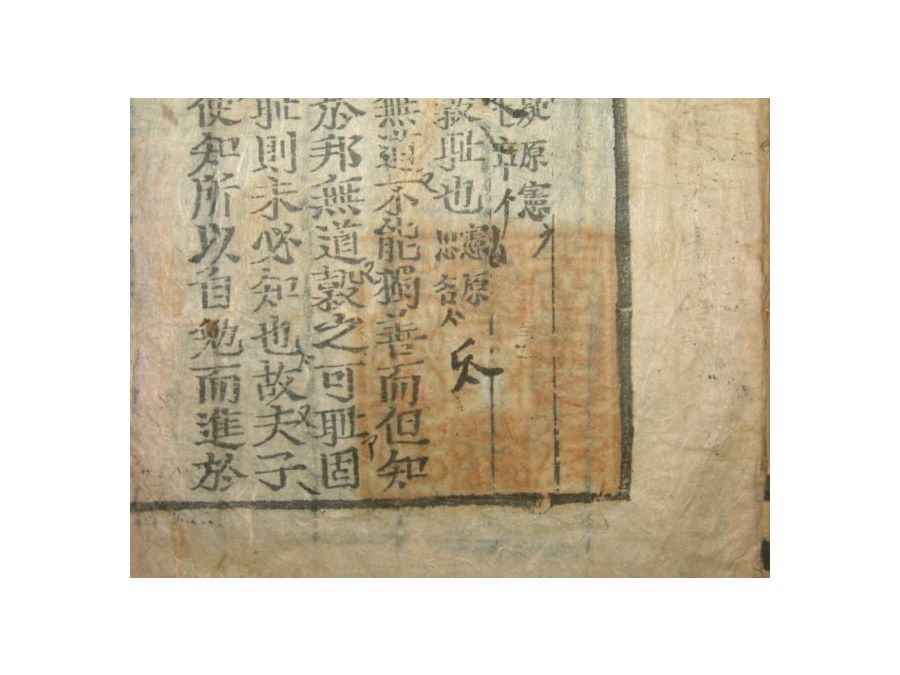 疑原憲
七章
穀耻也憲原思名
無道不能獨善而但知
扵邦無道穀之可耻固
耻則未必知也故夫子
使知所以自勉而進於